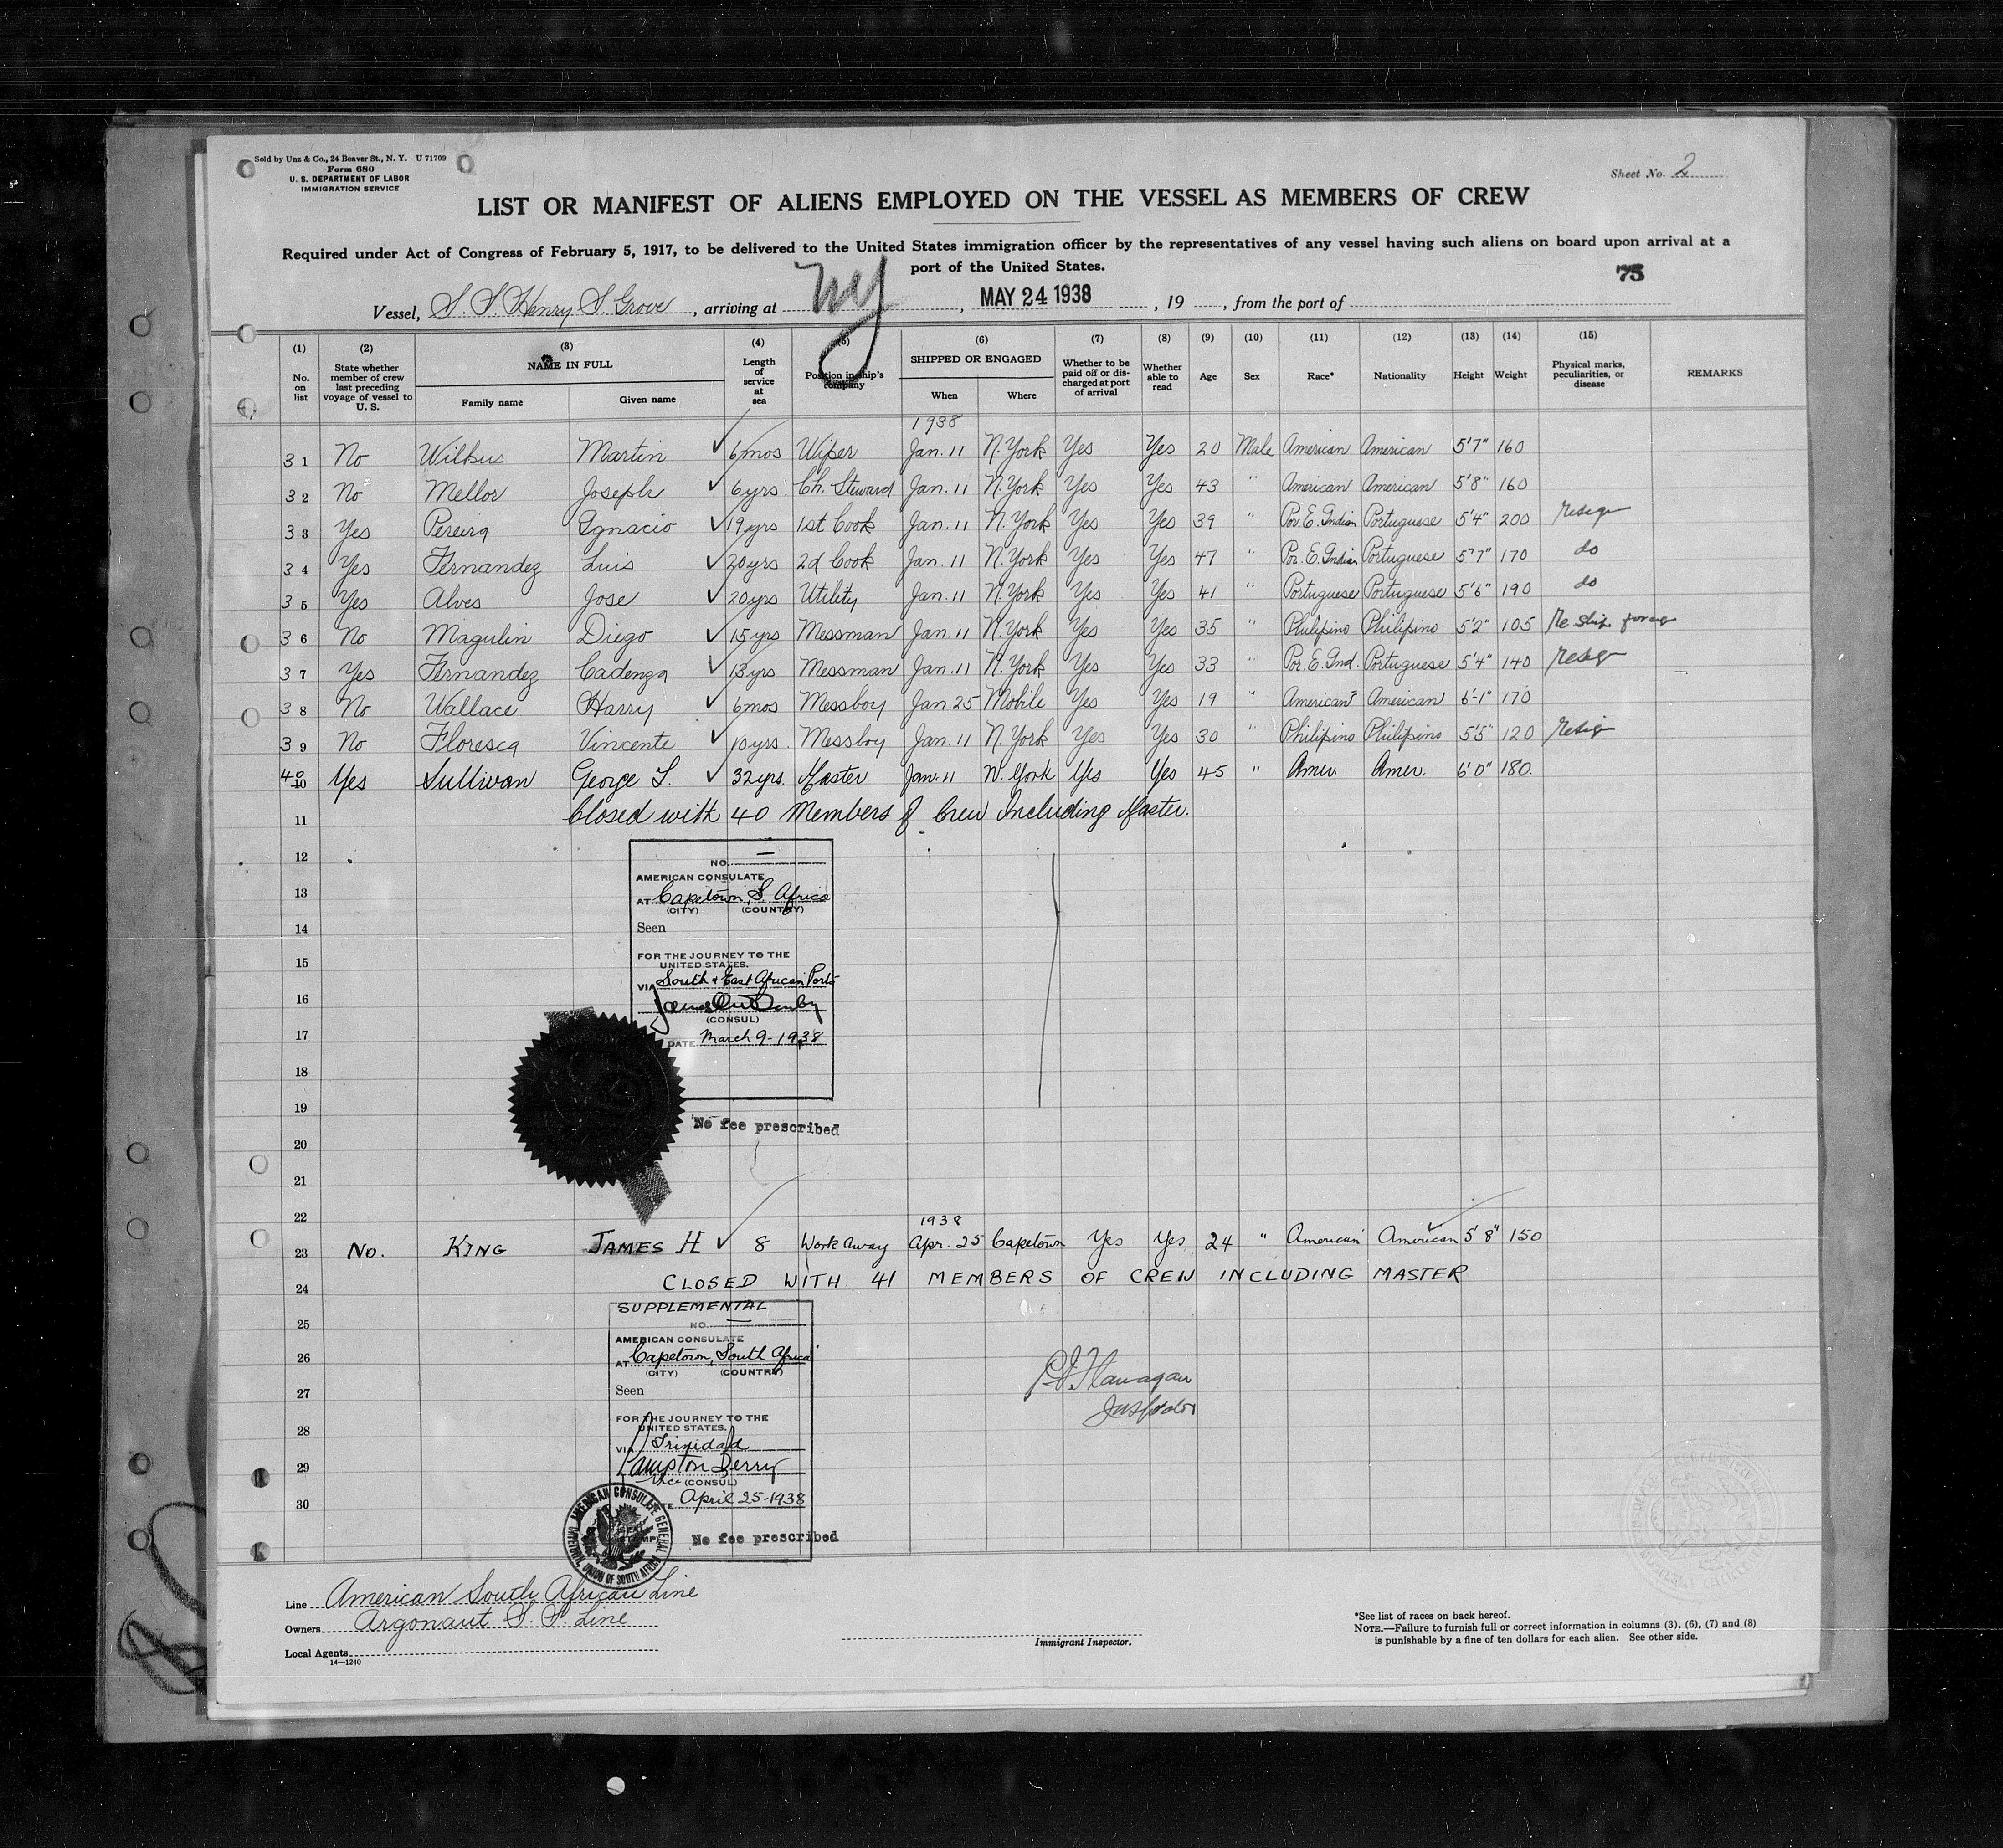 Sold by Unz & Co., 24 Beaver St., N. Y. U 71709
Form 680
U. S. DEPARTMENT OF LABOR
IMMIGRATION SERVICE
Sheet No. 2
LIST OR MANIFEST OF ALIENS EMPLOYED ON THE VESSEL AS MEMBERS OF CREW
Required under Act of Congress of February 5, 1917, to be delivered to the United States immigration officer by the representatives of any vessel having such aliens on board upon arrival at a
port of the United States.
75
Vessel, S. S. Henry S. Grove, arriving at NY, MAY 24 1938, 19 , from the port of
(1) (2) (3) (4) (5) (6) (7) (8) (9) (10) (11) (12) (13) (14) (15)
No. on list State whether member of crew last preceding voyage of vessel to U. S. NAME IN FULL Family name Given name Length of service at sea Position in ship's company SHIPPED OR ENGAGED When Where Whether to be paid off or discharged at port of arrival Whether able to read Age Sex Race* Nationality Height Weight Physical marks, peculiarities, or disease REMARKS
1938
31 No Wilkus Martin ✓ 6 mos Wiper Jan. 11 N. York Yes Yes 20 Male American American 5'7" 160
32 No Mellor Joseph ✓ 6 yrs. Ch. Steward Jan. 11 N. York Yes Yes 43 " American American 5'8" 160
33 Yes Pereira Ignacio ✓ 19 yrs 1st Cook Jan. 11 N. York Yes Yes 39 " Por. E. Indian Portuguese 5'4" 200
34 Yes Fernandez Luis ✓ 20 yrs 2d Cook Jan. 11 N. York Yes Yes 47 " Por. E. Indian Portuguese 5'7" 170 do
35 Yes Alves Jose ✓ 20 yrs Utility Jan. 11 N. York Yes Yes 41 " Portuguese Portuguese 5'6" 190 do
36 No Magulin Diego ✓ 15 yrs Messman Jan. 11 N. York Yes Yes 35 " Philipino Philipino 5'2" 105 Re ship
37 Yes Fernandez Cadenza ✓ 13 yrs Messman Jan. 11 N. York Yes Yes 33 " Por. E. Ind. Portuguese 5'4" 140
38 No Wallace Harry ✓ 6 mos Messboy Jan. 25 Mobile Yes Yes 19 " American American 6'-1" 170
39 No Floresca Vincente ✓ 10 yrs. Messboy Jan. 11 N. York Yes Yes 30 " Philipino Philipino 5'5" 120
40 10 Yes Sullivan George L. ✓ 32 yrs. Master Jan. 11 N. York Yes Yes 45 " Amer. Amer. 6'0" 180.
11 Closed with 40 Members of Crew Including Master.
12 NO. —
AMERICAN CONSULATE
13 AT Capetown, S. Africa
(CITY) (COUNTRY)
14 Seen
15 FOR THE JOURNEY TO THE
UNITED STATES.
VIA South & East African Ports
16
(CONSUL)
17 DATE March 9-1938
18
19
No fee prescribed
20
21
22 1938
23 No. KING JAMES H ✓ 8 Work away Apr. 25 Capetown Yes Yes 24 " American American 5'8" 150
24 CLOSED WITH 41 MEMBERS OF CREW INCLUDING MASTER
SUPPLEMENTAL
25 NO. —
AMERICAN CONSULATE
26 AT Capetown, South Africa
(CITY) (COUNTRY)
27 Seen
Flanagan
Inspector
FOR THE JOURNEY TO THE
28 UNITED STATES.
VIA Trinidad
29 Lampton Berry
Vice (CONSUL)
30 April 25-1938
AMERICAN CONSULATE GENERAL
CAPETOWN, UNION OF SOUTH AFRICA
No fee prescribed
Line American South African Line
Owners Argonaut S. S. Line
Local Agents
14—1240
Immigrant Inspector.
*See list of races on back hereof.
NOTE.—Failure to furnish full or correct information in columns (3), (6), (7) and (8)
is punishable by a fine of ten dollars for each alien. See other side.